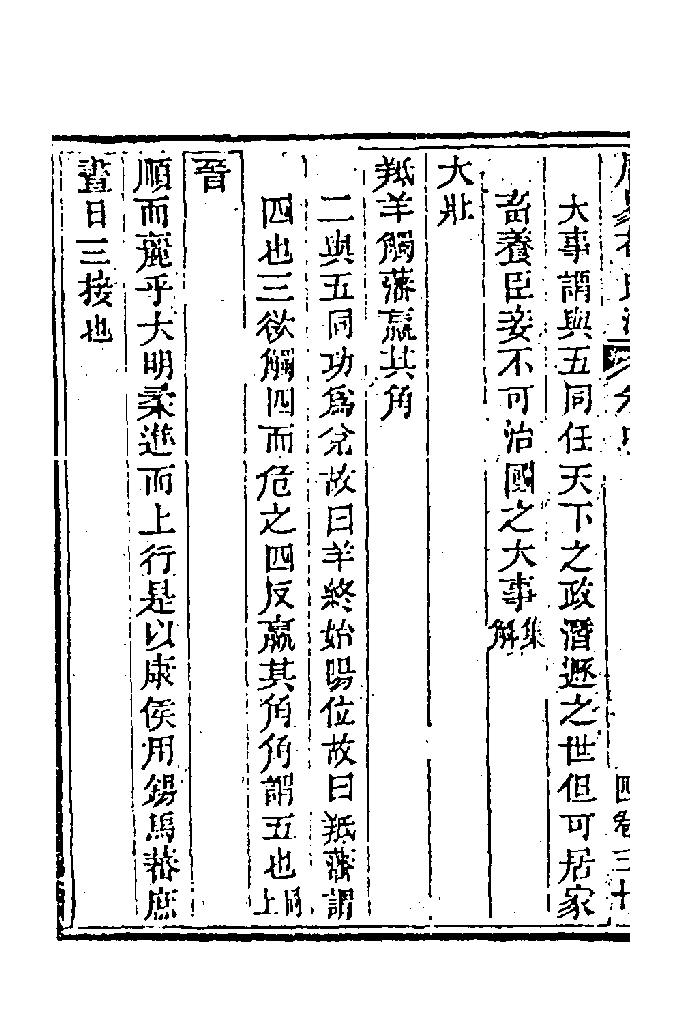 大事謂與五同任天下之政潛遯之世但可居家
畜養臣妾不可治國之大事集解
大壯
羝羊觸藩羸其角
二與五同功爲兌故曰羊終始陽位故曰羝藩謂
四也三欲觸四而危之四反羸其角角謂五也同上
晉
順而麗乎大明柔進而上行是以康侯用錫馬蕃庶
晝日三接也